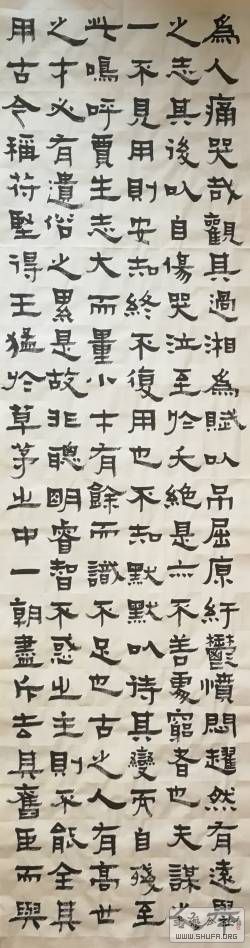 為人痛哭哉觀其過湘為賦以吊屈原紆鬱憤悶趯然有遠舉
之志其後以自傷哭泣至於夭絕是亦不善處窮者也夫謀之
一不見用則安知終不復用也不知默默以待其變而自殘至
此嗚呼賈生志大而量小才有餘而識不足也古之人有高世
之才必有遺俗之累是故非聰明睿智不惑之主則不能全其
用古今稱苻堅得王猛於草茅之中一朝盡斥去其舊臣而與
WWW.SHUFA.ORG